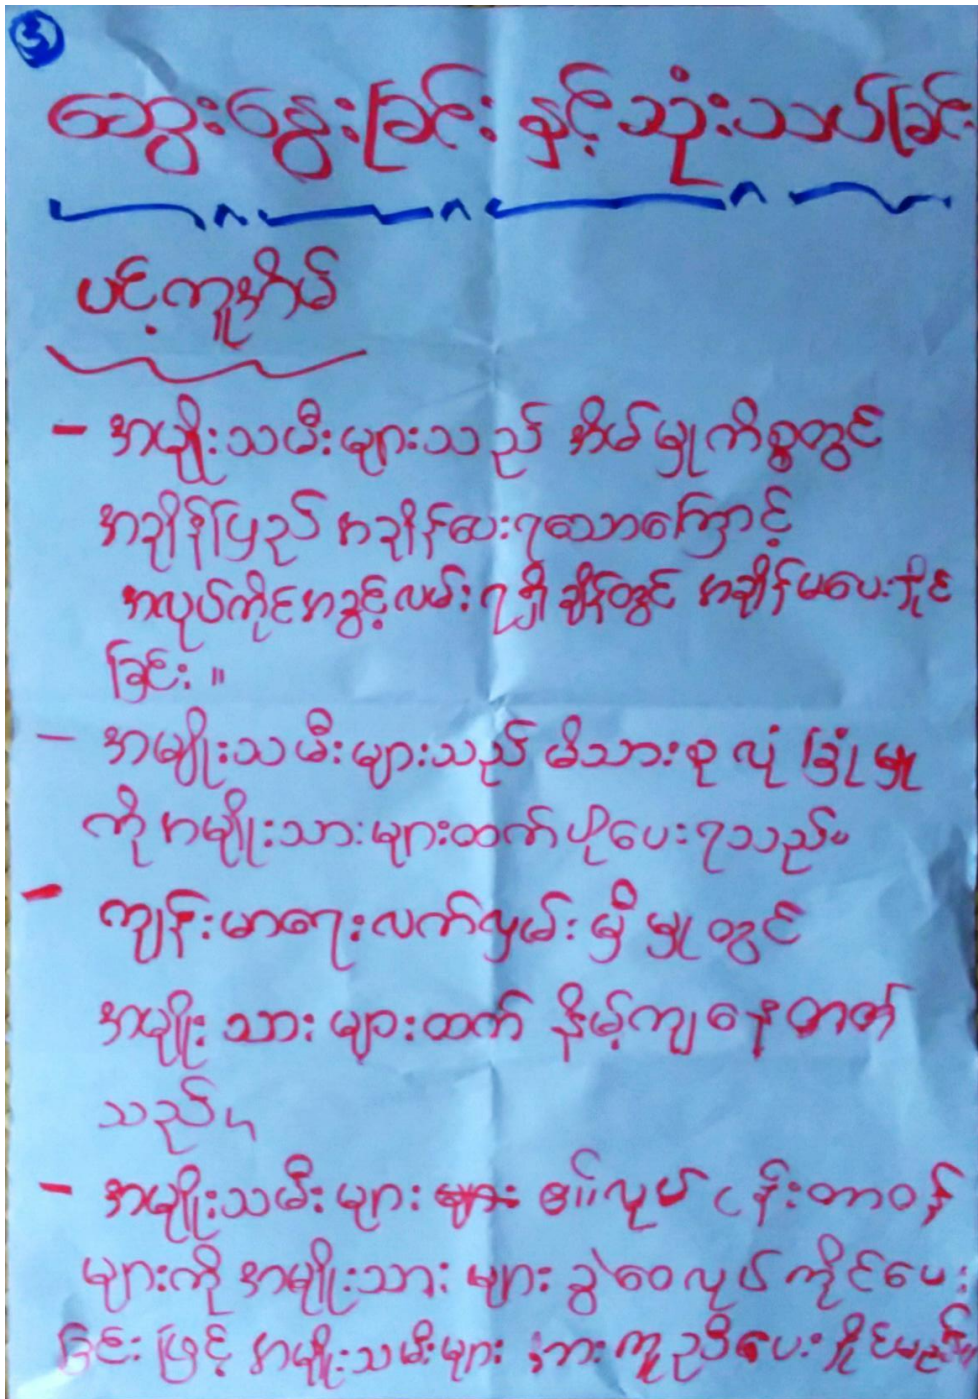 ၃
ဆွေးနွေးခြင်း နှင့် သုံးသပ်ခြင်း
ပင့်ကူအိမ်
- အမျိုးသမီးများသည် အိမ်မှုကိစ္စတွင်
အချိန်ပြည့် အချိန်ပေးရသောကြောင့်
အလုပ်ကိုင်အခွင့်လမ်းရရှိချိန်တွင် အချိန်မပေးနိုင်
ခြင်း။
- အမျိုးသမီးများသည် မိသားစု လုံခြုံမှု
ကို အမျိုးသားများထက်ပိုပေးရသည်။
- ကျန်းမာရေးလက်လှမ်းမှီမှုတွင်
အမျိုးသားများထက် နိမ့်ကျနေတတ်
သည်။
- အမျိုးသမီးများ လုပ်ငန်းတာဝန်
များကို အမျိုးသားများ ခွဲဝေလုပ်ကိုင်ပေး
ခြင်းဖြင့် အမျိုးသမီးများအား ကူညီပေးနိုင်မည်။